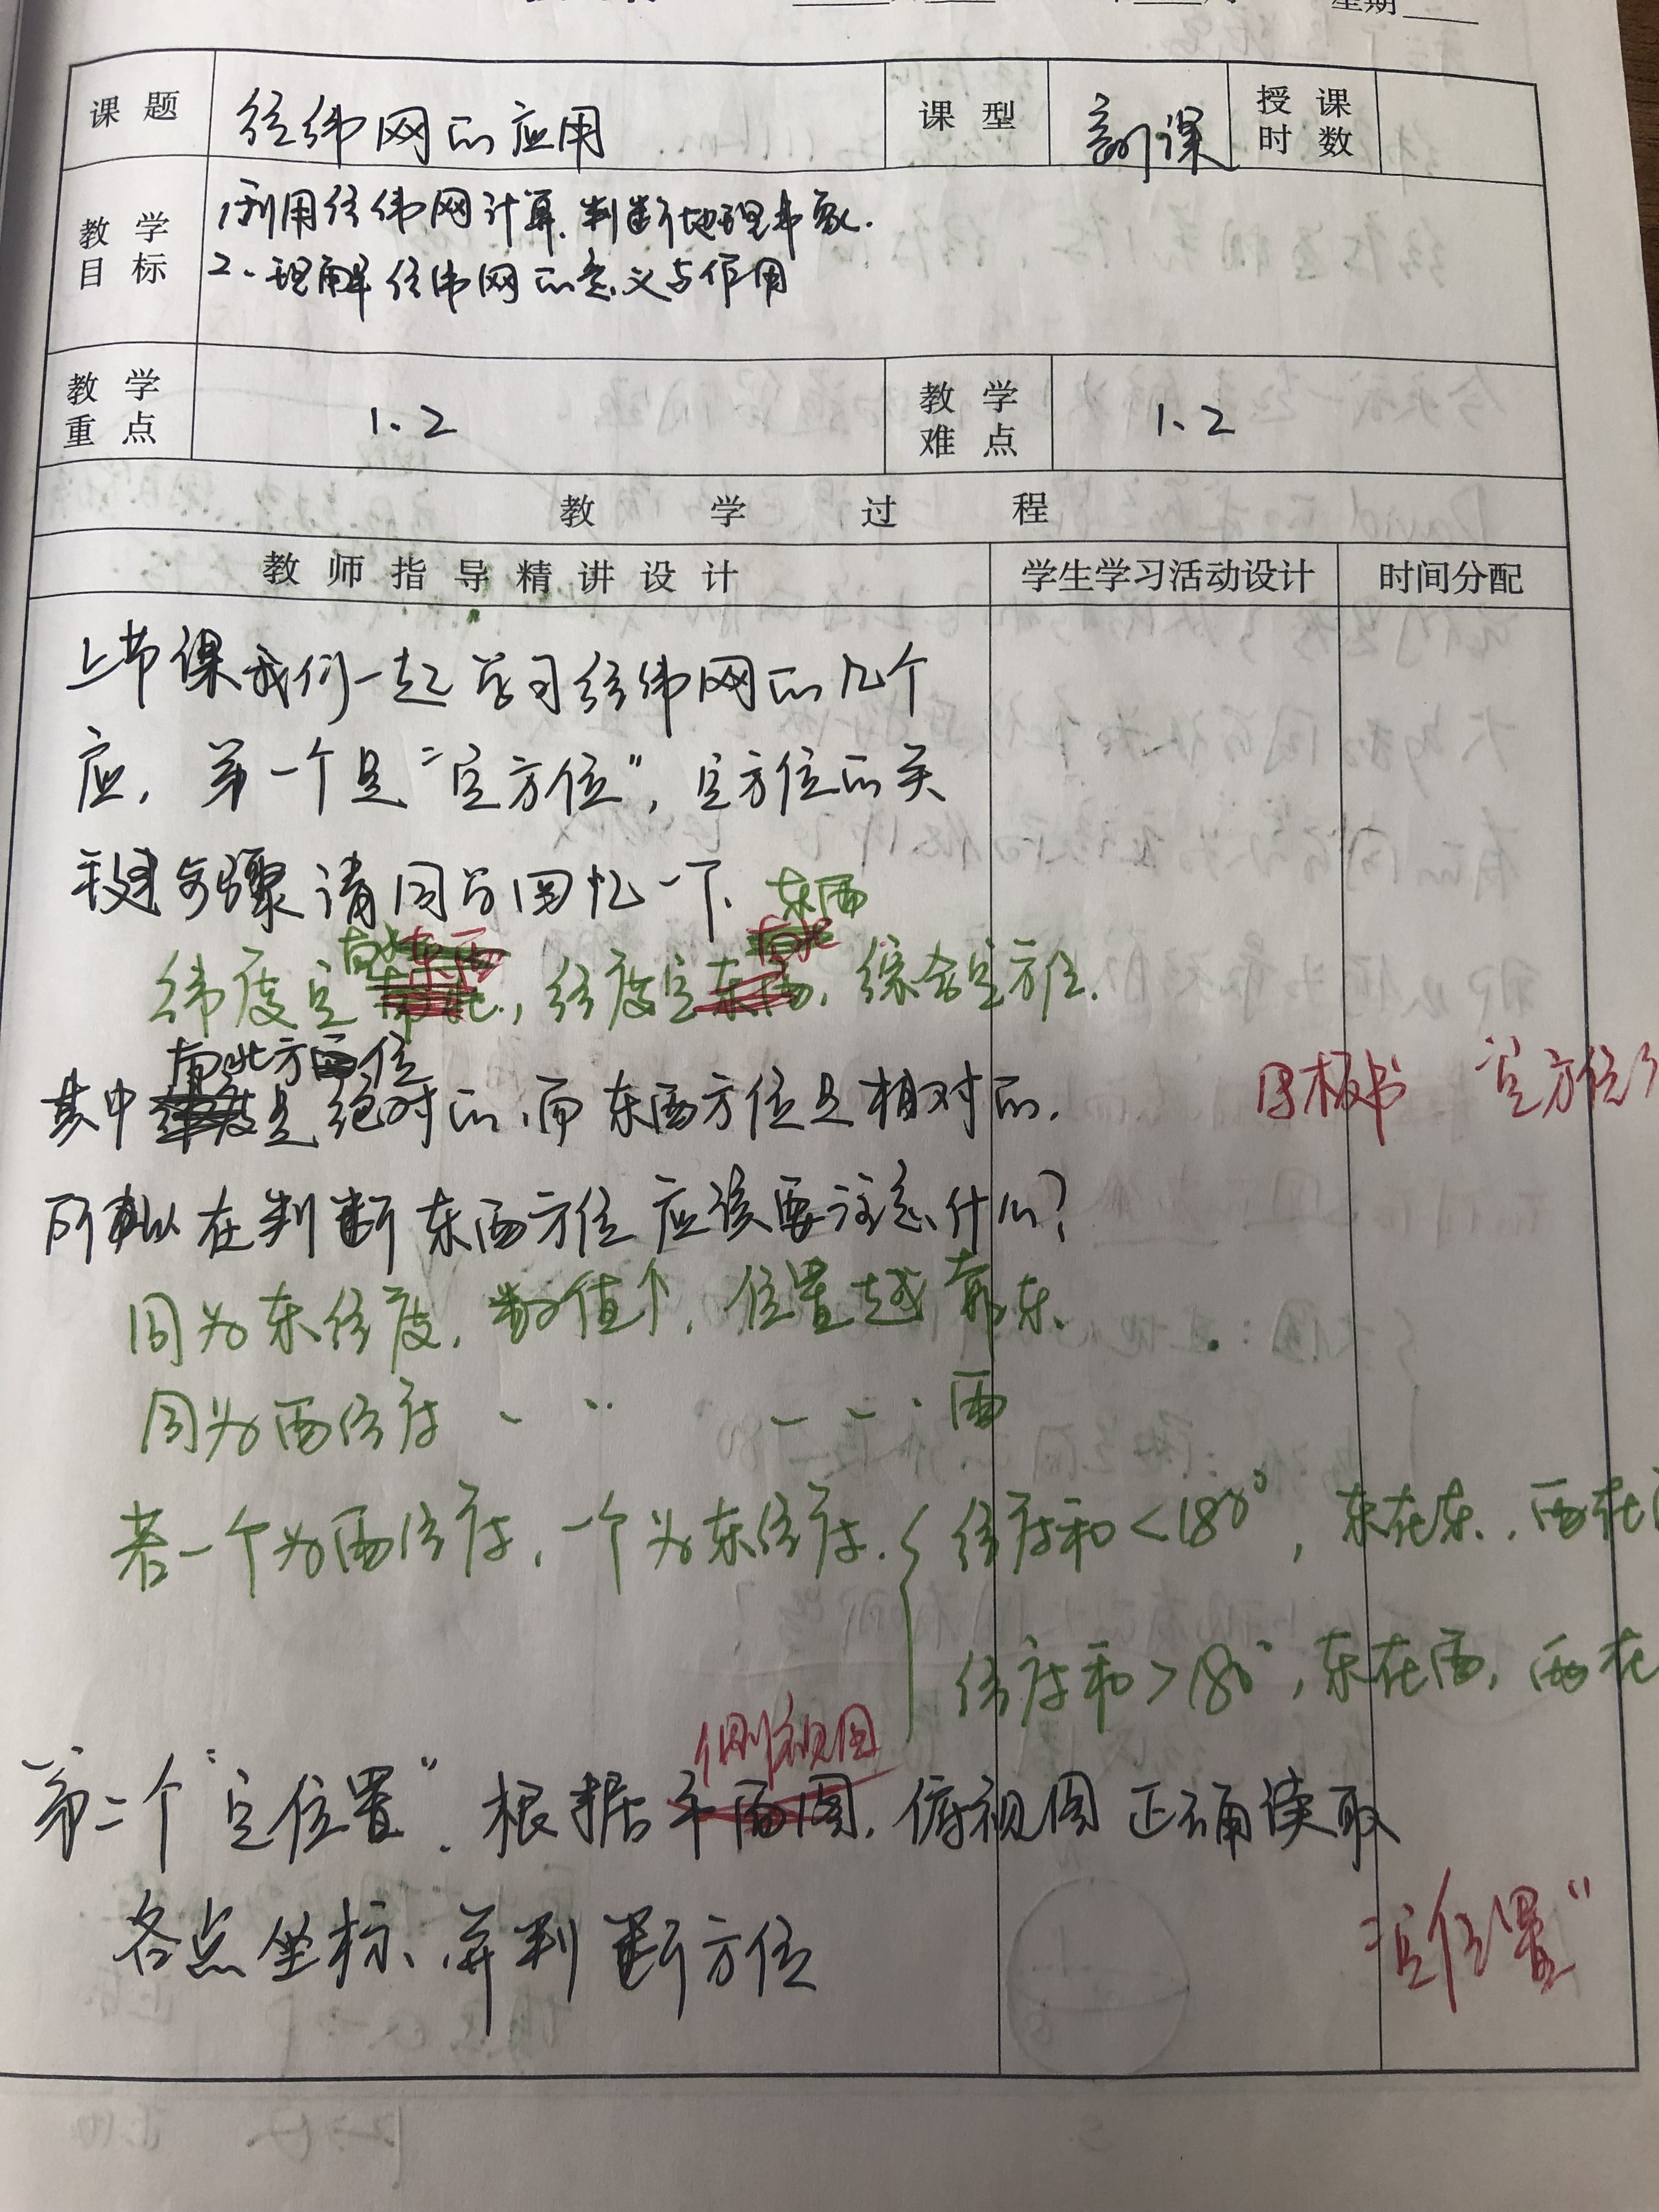 星期
课题 经纬网的应用 课型 新课 授课时数
教学目标 1.利用经纬网计算、判断地理事象.
2、理解经纬网的意义与作用
教学重点 1、2 教学难点 1、2
教学过程
教师指导精讲设计 学生学习活动设计 时间分配
上节课我们一起学习经纬网的几个
应, 第一个是“定方位”, 定方位的关
键步骤请同学回忆一下、
东西
南北
纬度定, 经度定, 综合定方位.
南北方位
其中是绝对的、而东西方位是相对的.
用板书 “定方位”
所以在判断东西方位应该要注意什么?
同为东经度, 数值大, 位置越靠东.
同为西经度 、 ·· — — · 西
若一个为西经度, 一个为东经度. { 经度和<180°, 东在东, 西在
经度和>180°, 东在西, 西在
侧视图
第二个“定位置”. 根据平面图, 俯视图正确读取
各点坐标、并判断方位
“定位置”